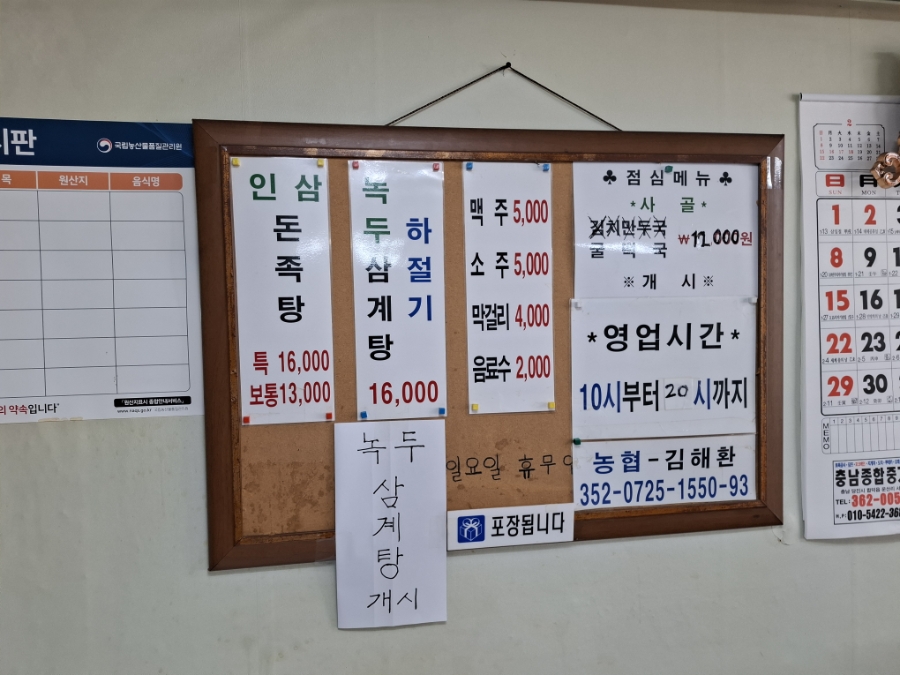 시판
국립농산물품질관리원
목 원산지 음식명
의 약속입니다"
인삼
돈족탕
특 16,000
보통13,000
녹두삼계탕
하절기
16,000
맥주 5,000
소주 5,000
막걸리 4,000
음료수 2,000
♣ 점심메뉴 ♣
*사 골*
굴 떡 국
₩12,000원
※개 시※
*영업시간*
10시부터 20시까지
농협-김해환
352-0725-1550-93
녹두
삼
계
탕
개시
일요일 휴무
포장됩니다
日 月
SUN MON
1 2
8 9
15 16
22 23
29 30
MEMO
충남종합중
TEL: 362-005
010-5422-368